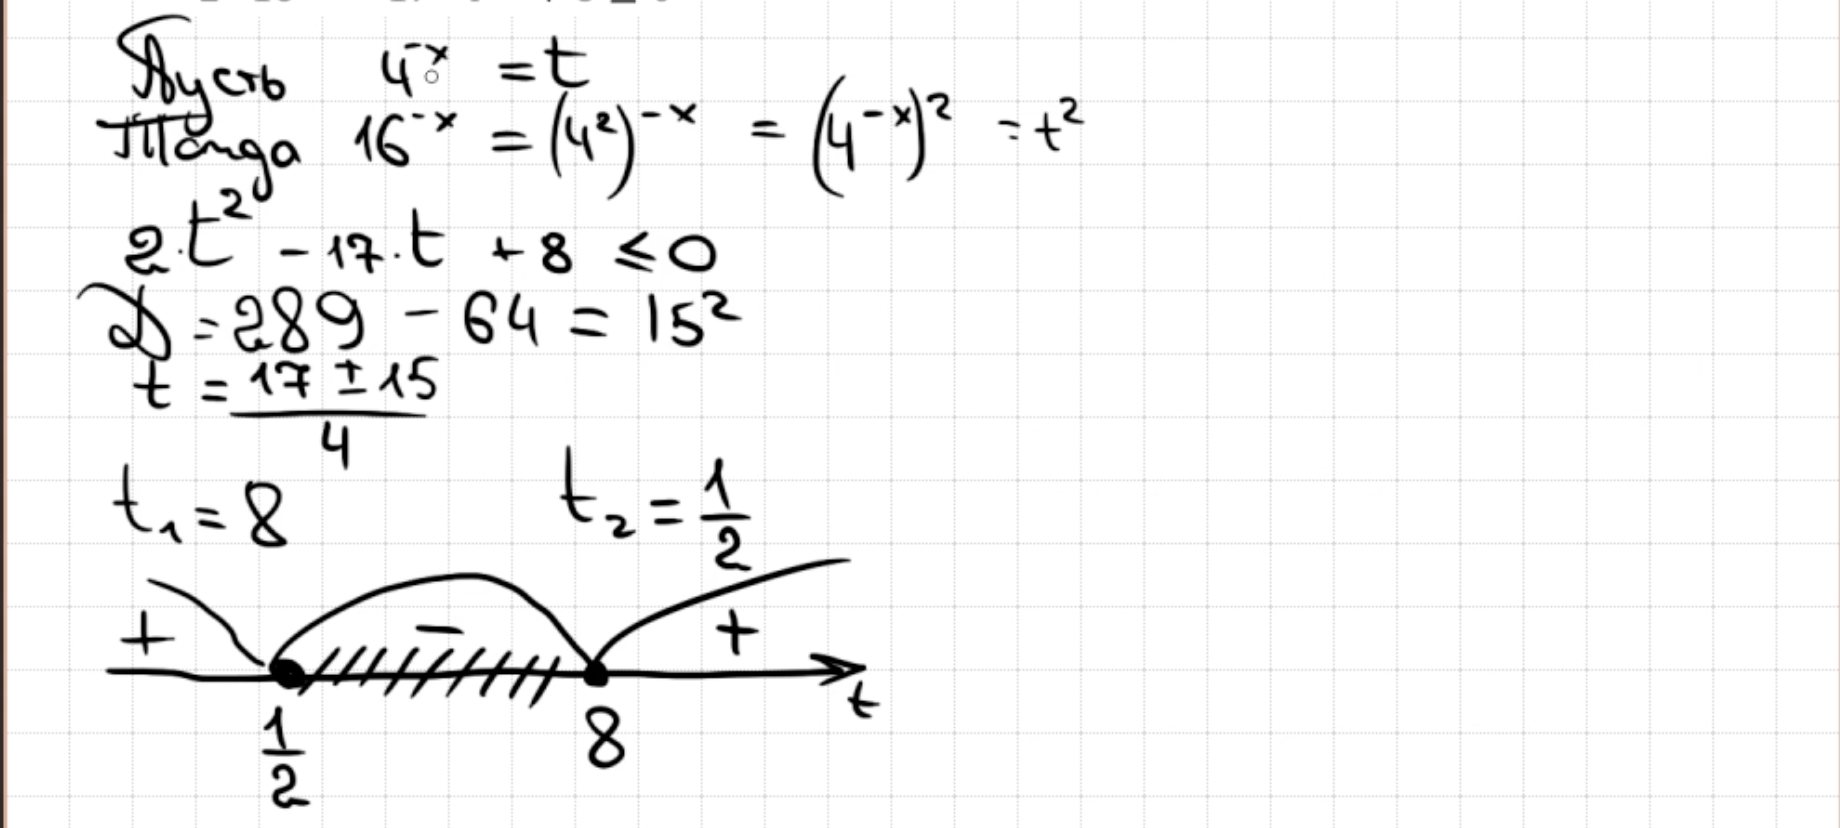 Пусть 4^{-x} = t
Тогда 16^{-x} = (4²)^{-x} = (4^{-x})² = t²
2·t² - 17·t + 8 ≤ 0
D = 289 - 64 = 15²
t = \frac{17 ± 15}{4}
t₁ = 8 t₂ = \frac{1}{2}
+ - +
t
\frac{1}{2} 8